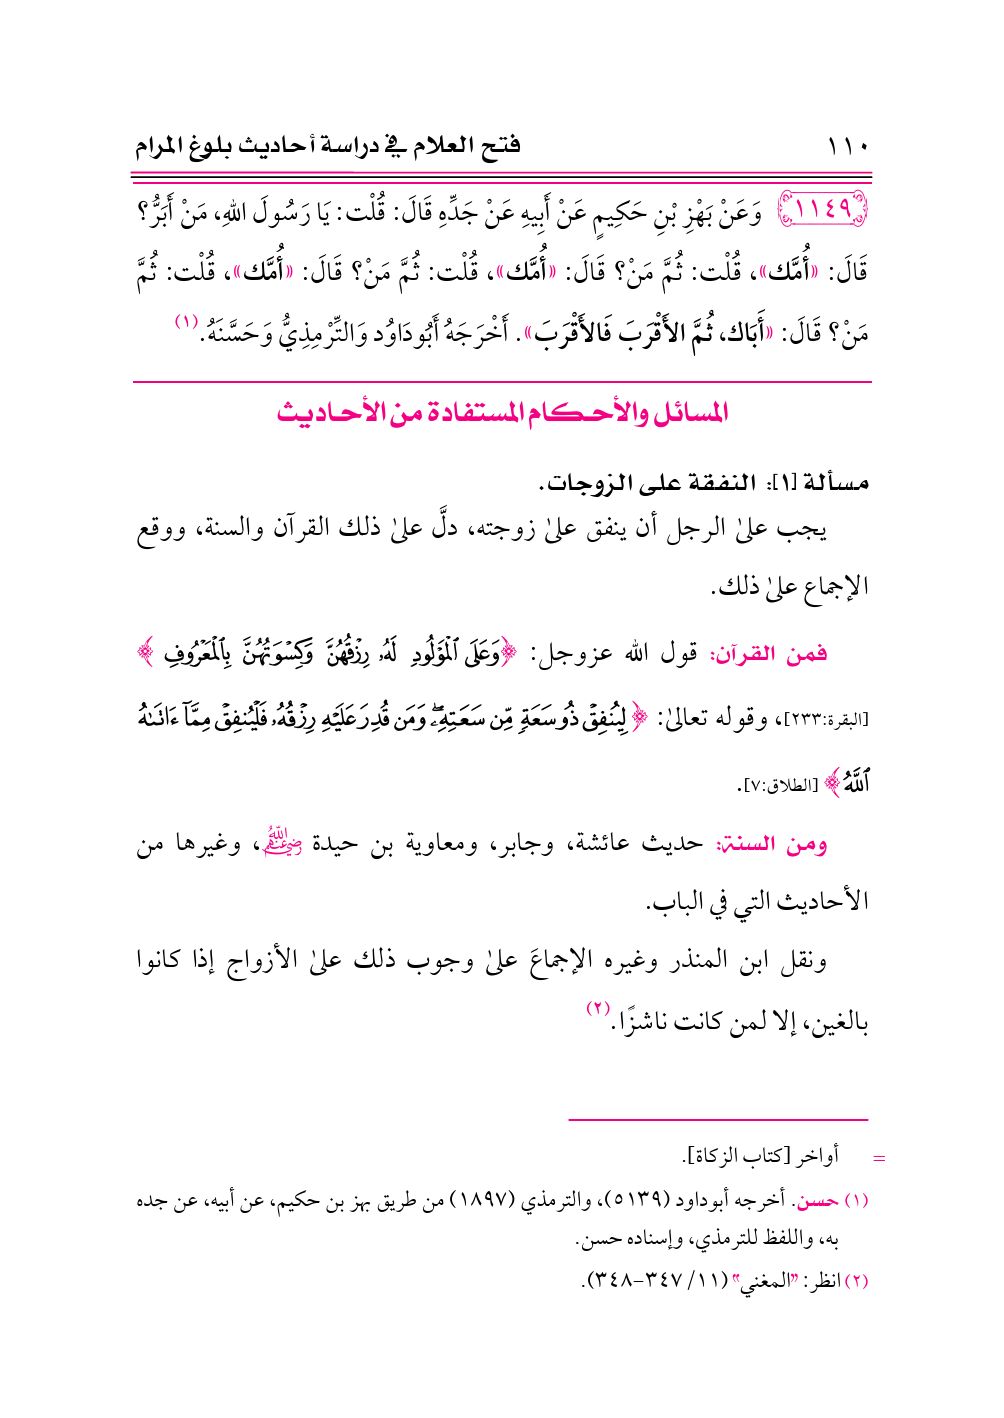 ١١٠ فتح العلام في دراسة أحاديث بلوغ المرام
١١٤٩ وَعَنْ بَهْزِ بْنِ حَكِيمٍ عَنْ أَبِيهِ عَنْ جَدِّهِ قَالَ: قُلْت: يَا رَسُولَ اللهِ، مَنْ أَبَرُّ؟
قَالَ: «أُمَّك»، قُلْت: ثُمَّ مَنْ؟ قَالَ: «أُمَّك»، قُلْت: ثُمَّ مَنْ؟ قَالَ: «أُمَّك»، قُلْت: ثُمَّ
مَنْ؟ قَالَ: «أَبَاك، ثُمَّ الأَقْرَبَ فَالأَقْرَبَ». أَخْرَجَهُ أَبُودَاوُد وَالتِّرْمِذِيُّ وَحَسَّنَهُ.(١)
المسائل والأحكام المستفادة من الأحاديث
مسألة [١]: النفقة على الزوجات.
يجب علىٰ الرجل أن ينفق علىٰ زوجته، دلَّ علىٰ ذلك القرآن والسنة، ووقع
الإجماع علىٰ ذلك.
فمن القرآن: قول الله عزوجل: ﴿وَعَلَى ٱلْمَوْلُودِ لَهُۥ رِزْقُهُنَّ وَكِسْوَتُهُنَّ بِٱلْمَعْرُوفِ﴾
[البقرة:٢٣٣]، وقوله تعالىٰ: ﴿لِيُنفِقْ ذُو سَعَةٍ مِّن سَعَتِهِۦ ۖ وَمَن قُدِرَ عَلَيْهِ رِزْقُهُۥ فَلْيُنفِقْ مِمَّآ ءَاتَىٰهُ
ٱللَّهُ﴾ [الطلاق:٧].
ومن السنة: حديث عائشة، وجابر، ومعاوية بن حيدة رضي الله عنهم، وغيرها من
الأحاديث التي في الباب.
ونقل ابن المنذر وغيره الإجماعَ علىٰ وجوب ذلك علىٰ الأزواج إذا كانوا
بالغين، إلا لمن كانت ناشزًا.(٢)
= أواخر [كتاب الزكاة].
(١) حسن. أخرجه أبوداود (٥١٣٩)، والترمذي (١٨٩٧) من طريق بهز بن حكيم، عن أبيه، عن جده
به، واللفظ للترمذي، وإسناده حسن.
(٢) انظر: "المغني" (١١/ ٣٤٧-٣٤٨).